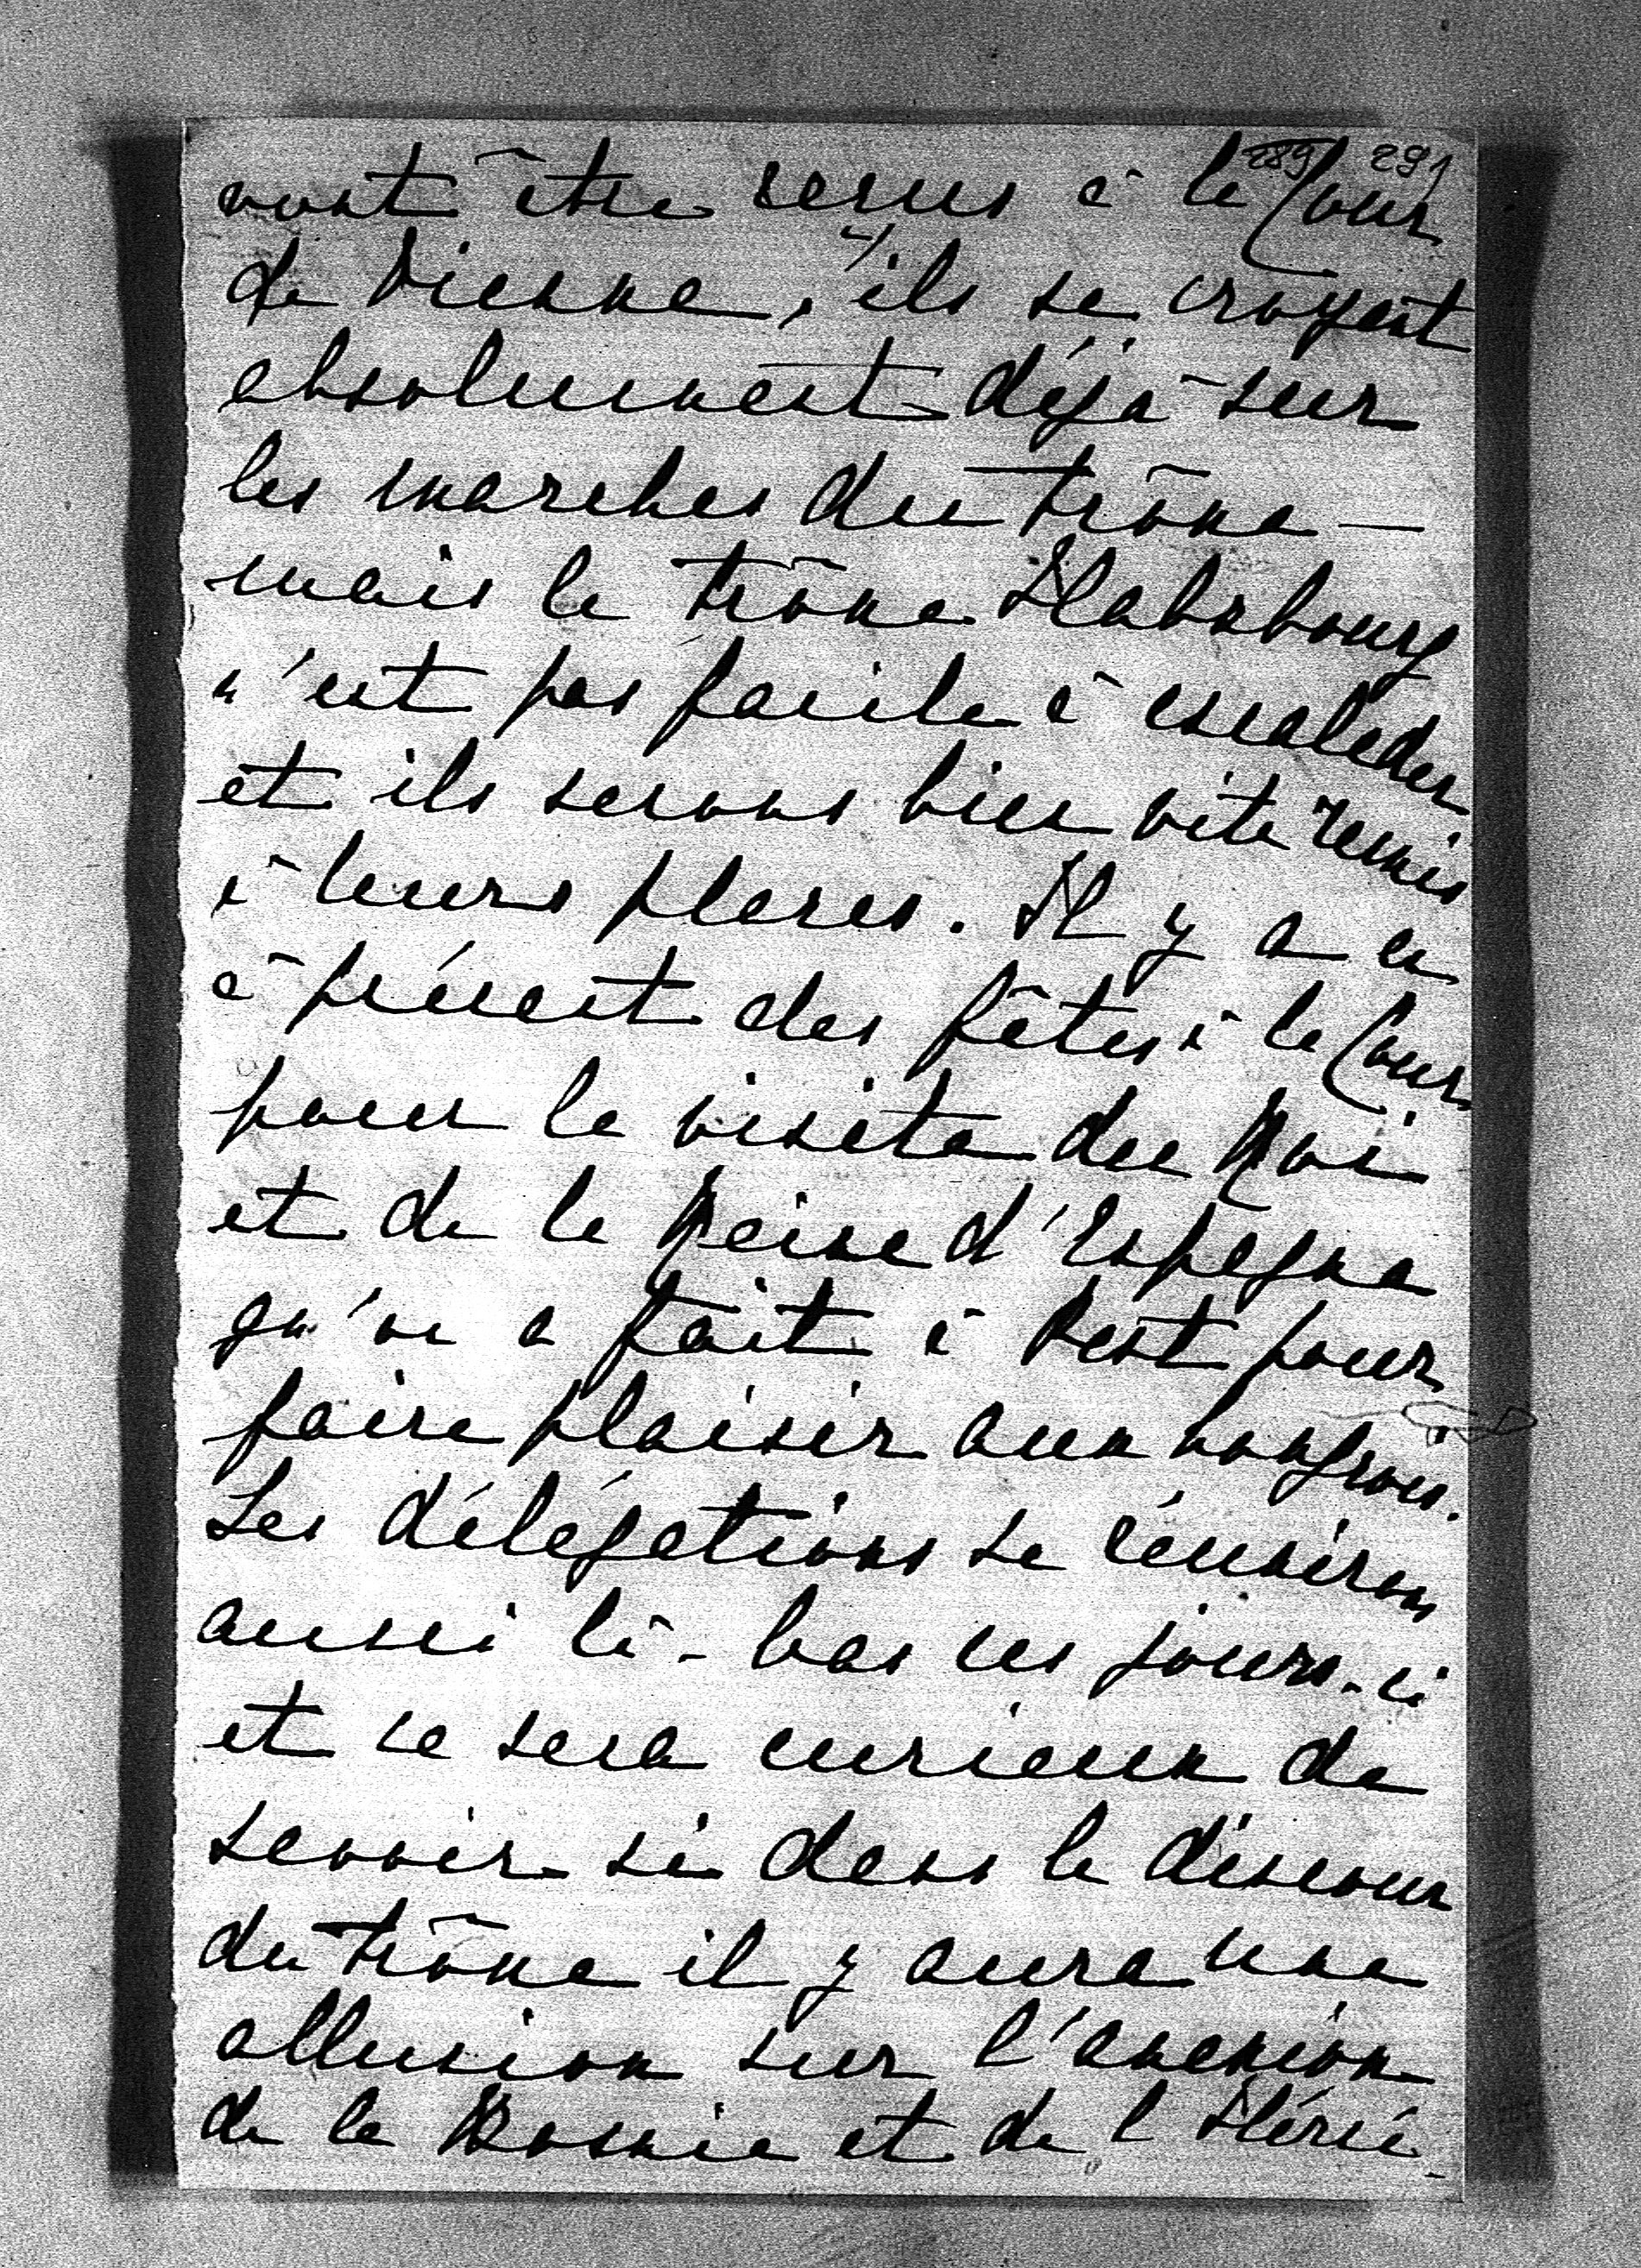 289 291
vont être recus à la Cour
4/
de Vienne, ils se croyent
absolument déjà sur
les marches du trône —
mais le trône Habsbourg
n'est pas facile à escalader
et ils serons bien vite remis
à leurs places. Il y a eu
à présent des fêtes à la Cour
pour la visite du Roi
et de la Reine d'Espagne
qu'on a fait à Pest pour
faire plaisir aux hongrois.
Les délégations se réunirons
aussi là-bas ces jours-ci
et ce sera curieux de
savoir si dans le discour
du trône il y aura une
allusion sur l'anexion
de la Bosnie et de l'Hérzé-